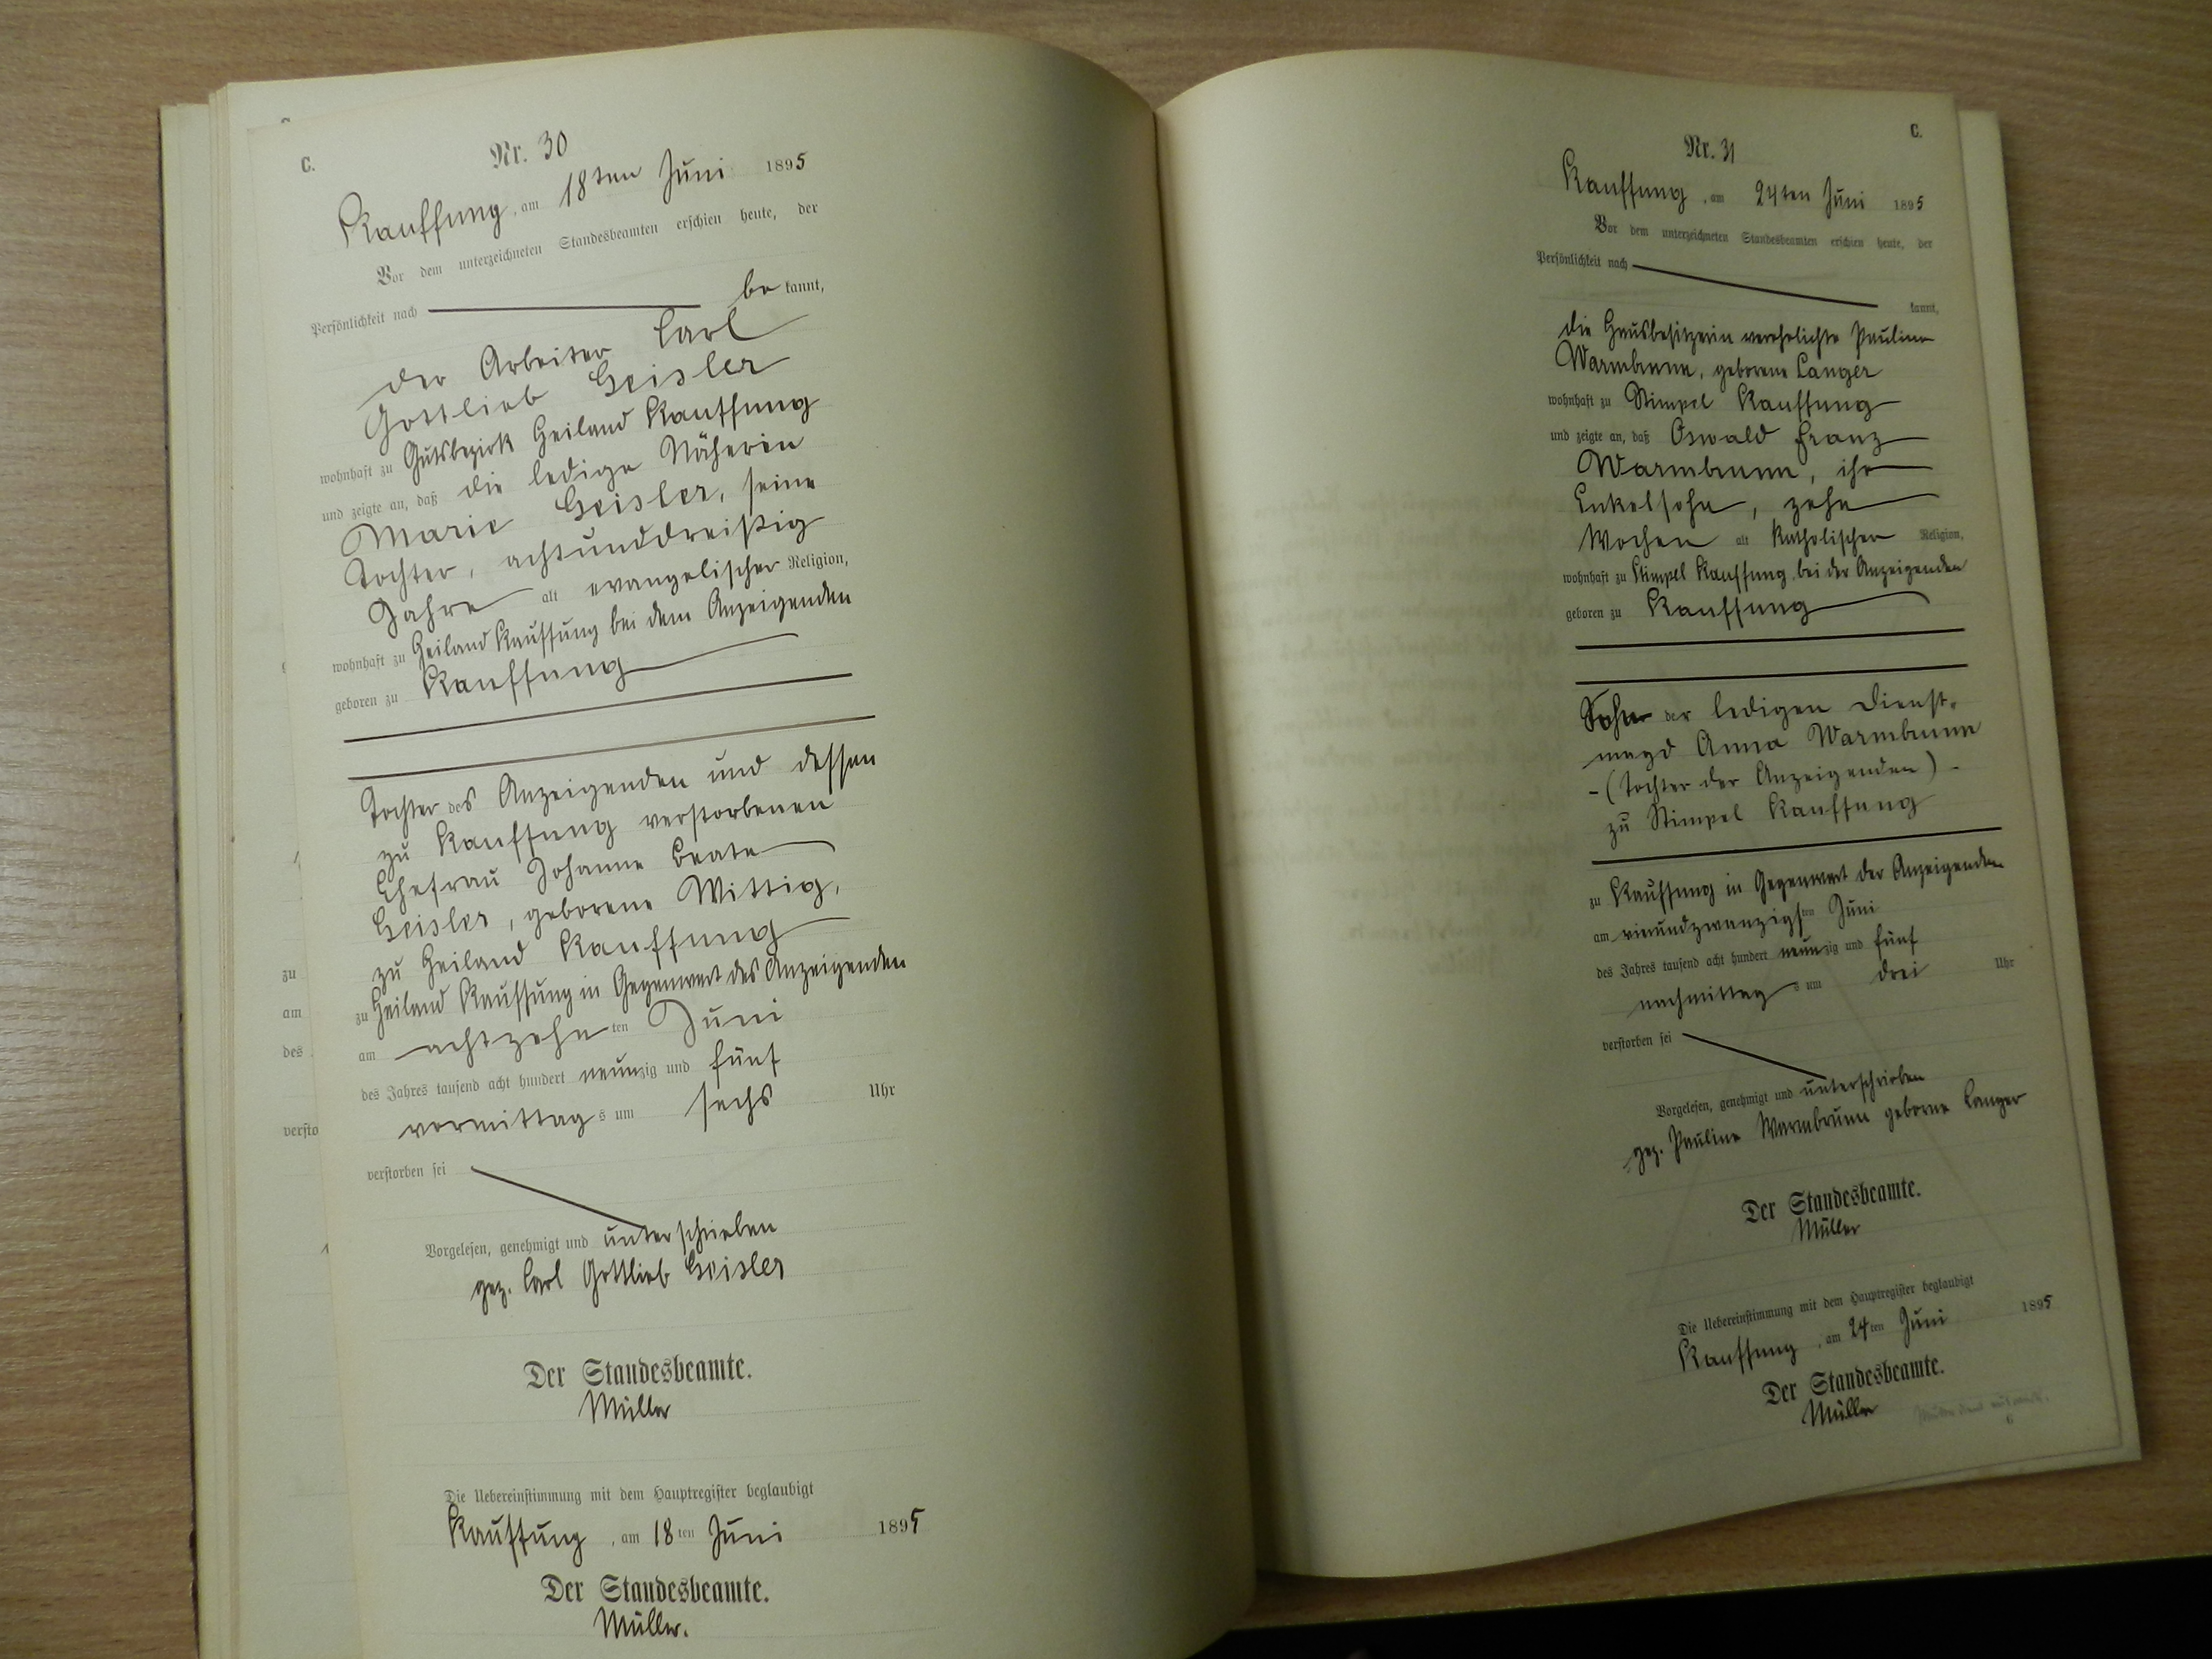 C.
Nr. 30
Kauffung, am 18ten Juni 1895
Vor dem unterzeichneten Standesbeamten erschien heute, der
Persönlichkeit nach be kannt,
der Arbeiter Carl
Gottlieb Geisler
wohnhaft zu Gutsbezirk Heiland Kauffung
und zeigte an, daß die ledige Näherin
Marie Geisler, seine
Tochter, achtunddreißig
Jahre alt evangelischer Religion,
wohnhaft zu Heiland Kauffung bei dem Anzeigenden
geboren zu Kauffung
Tochter des Anzeigenden und dessen
zu Kauffung verstorbenen
Ehefrau Johanne Beate
Geisler, geborene Wittig,
zu Heiland Kauffung
zu Heiland Kauffung in Gegenwart des Anzeigenden
am achtzehn ten Juni
des Jahres tausend acht hundert neunzig und fünf
vormittag s um sechs Uhr
verstorben sei
Vorgelesen, genehmigt und unterschrieben
gez. Carl Gottlieb Geisler
Der Standesbeamte.
Müller
Die Uebereinstimmung mit dem Hauptregister beglaubigt
Kauffung, am 18 ten Juni 1895
Der Standesbeamte.
Müller.
zu
am
des
versto
C.
Nr. 31
Kauffung, am 24ten Juni 1895
Vor dem unterzeichneten Standesbeamten erschien heute, der
Persönlichkeit nach
kannt,
die Hausbesitzerin verehelichte Pauline
Warmbrunn, geborene Langer
wohnhaft zu Stimpel Kauffung
und zeigte an, daß Oswald Franz
Warmbrunn, ihr
Enkelsohn, zehn
Wochen alt katholischer Religion,
wohnhaft zu Stimpel Kauffung bei der Anzeigenden
geboren zu Kauffung
Sohn der ledigen Dienst-
magd Anna Warmbrunn
-(Tochter der Anzeigenden)-
zu Stimpel Kauffung
zu Kauffung in Gegenwart der Anzeigenden
am vierundzwanzigsten Juni
des Jahres tausend acht hundert neunzig und fünf
nachmittag s um drei Uhr
verstorben sei
Vorgelesen, genehmigt und unterschrieben
gez. Pauline Warmbrunn geborne Langer
Der Standesbeamte.
Müller
Die Uebereinstimmung mit dem Hauptregister beglaubigt
Kauffung, am 24 ten Juni 1895
Der Standesbeamte.
Müller